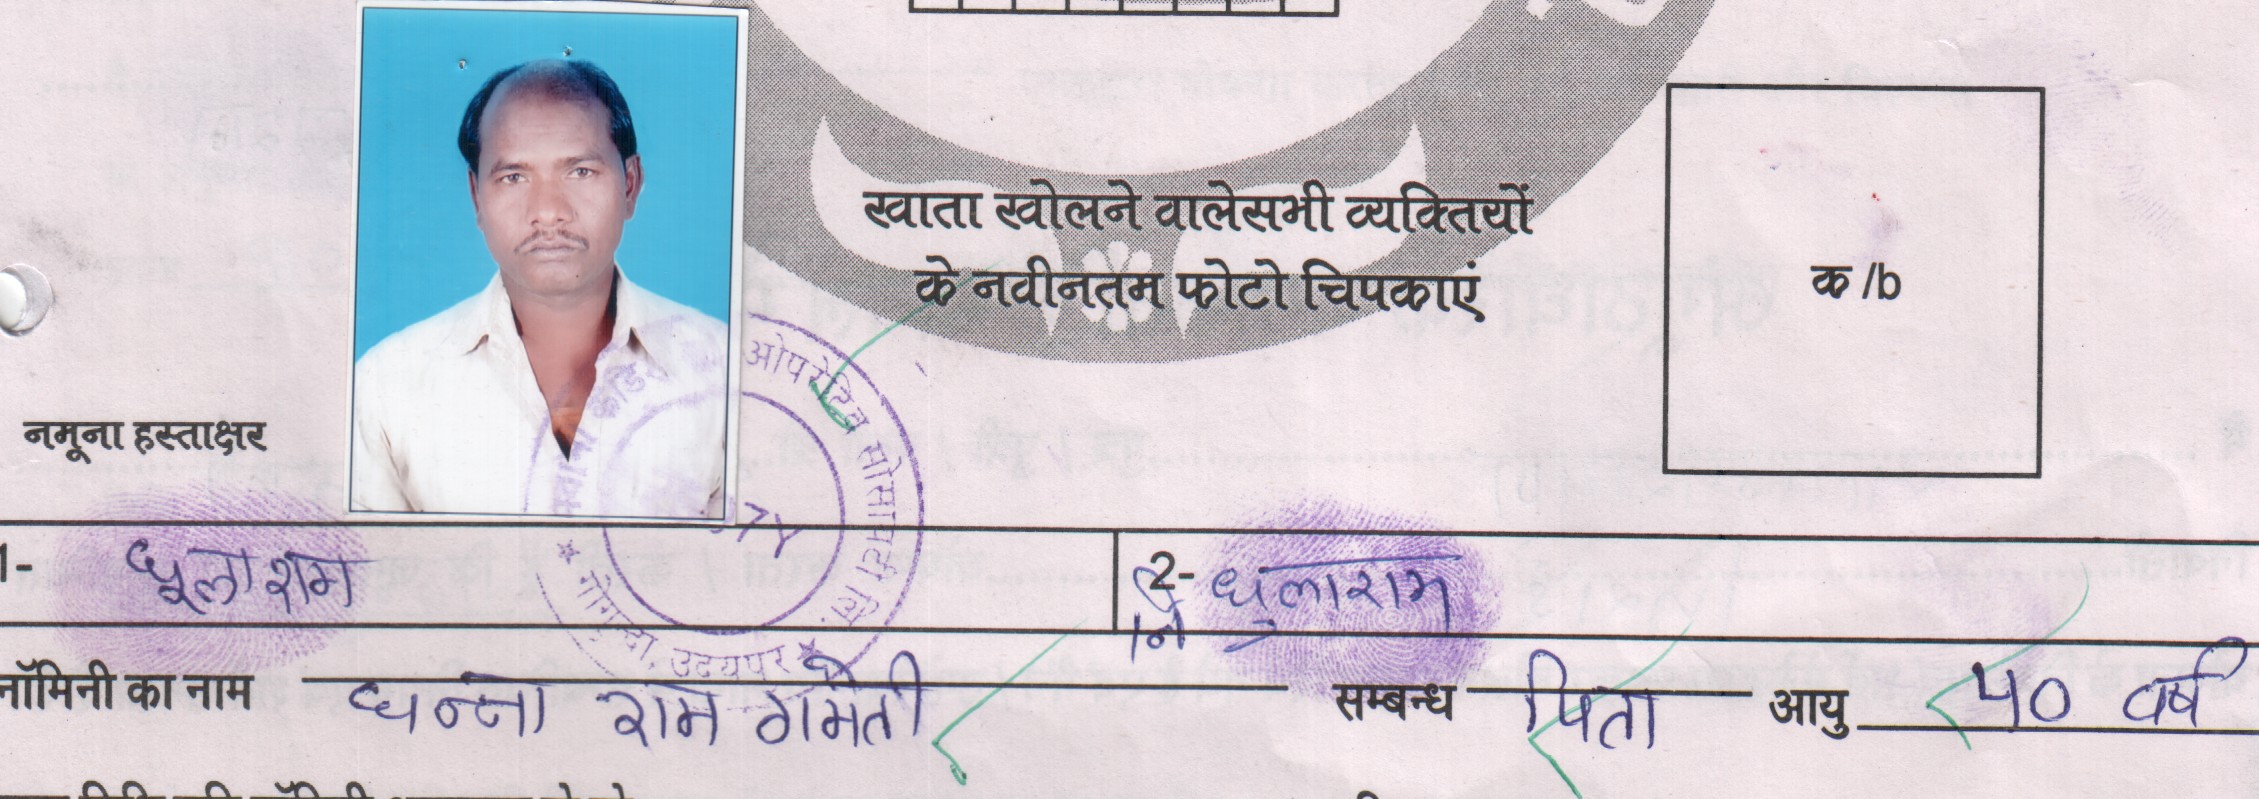 खाता खोलने वालेसभी व्यक्तियों
के नवीनतम फोटो चिपकाएं
क /b
नमूना हस्ताक्षर
ओपरेटिव सोसायटी लि.
गोगुन्दा, उदयपुर
1- धूलाराम
2- धुलाराम
नॉमिनी का नाम धन्ना राम गमेती सम्बन्ध पिता आयु ५० वर्ष